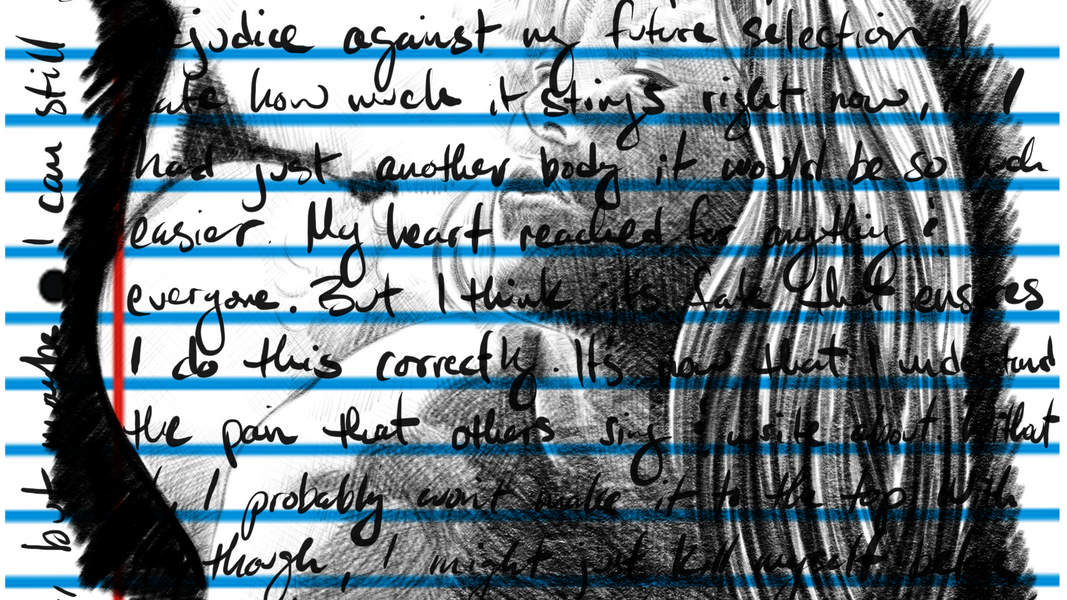 judice against my future selection I
hate how much it stings right now, if I
had just another body it would be so much
easier. My heart reached for anything &
everyone. But I think it's fate that ensures
I do this correctly. It's now that I understand
the pain that others sing & write about. Without
it, I probably won't make it to the top. With
though, I might just kill myself before
but maybe I can still